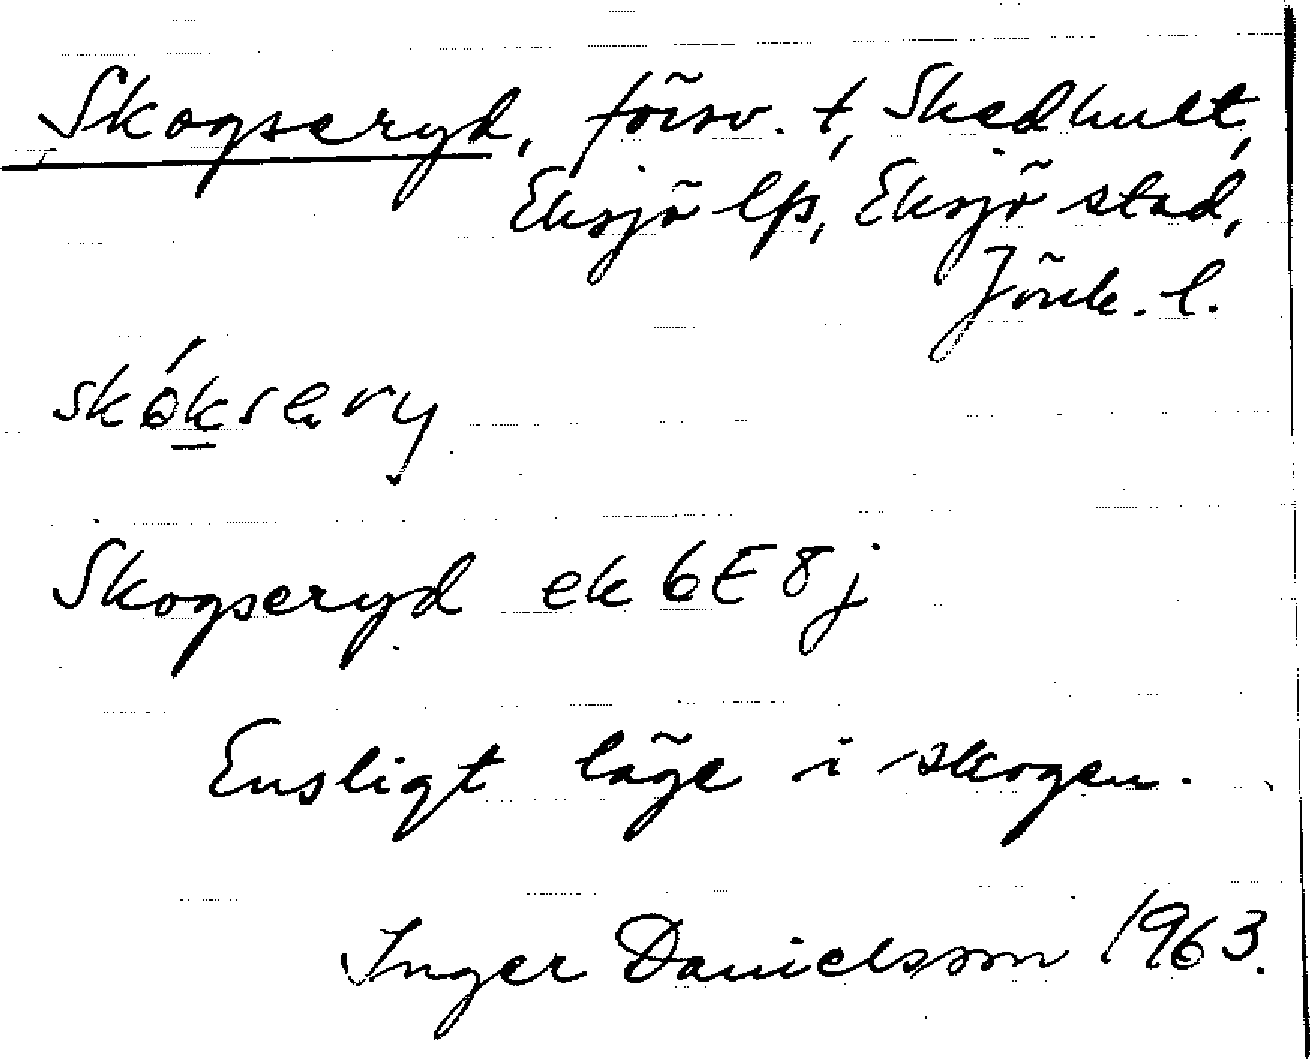 Skogseryd, försv. t, Skedhult,
Eksjö lfs, Eksjö stad,
Jönk. l.
skóksery
Skogseryd ek 6E8j
Ensligt läge i skogen.
Inger Danielsson 1963.